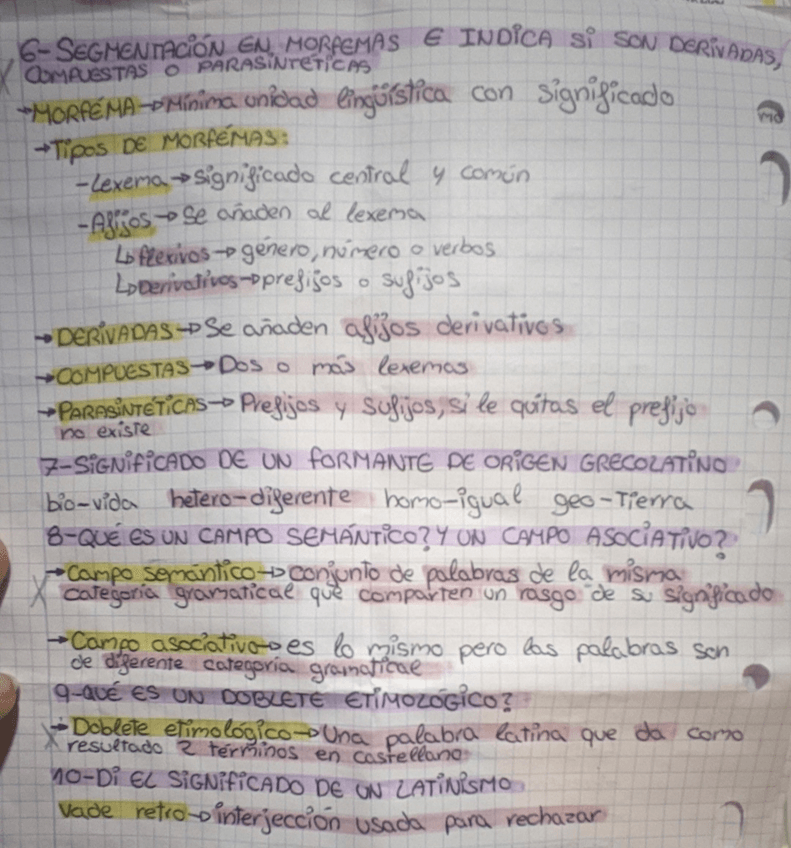 6-SEGMENTACIÓN EN MORFEMAS E INDICA SI SON DERIVADAS,
COMPUESTAS O PARASINTÉTICAS
→MORFÉMA→Mínima unidad lingüística con significado
→TIPOS DE MORFÉMAS:
-Lexema→significado central y común
-Afijos→Se añaden al lexema
↳flexivos→género, número o verbos
↳Derivativos→prefijos o sufijos
→DERIVADAS→Se añaden afijos derivativos
→COMPUESTAS→Dos o más lexemas
→PARASINTÉTICAS→Prefijos y sufijos, si le quitas el prefijo
no existe
7-SIGNIFICADO DE UN FORMANTE DE ORIGEN GRECOLATINO
bio-vida hetero-diferente homo-igual geo-Tierra
8-QUÉ ES UN CAMPO SEMÁNTICO? Y UN CAMPO ASOCIATIVO?
→Campo semántico→conjunto de palabras de la misma
categoría gramatical que comparten un rasgo de su significado
→Campo asociativo→es lo mismo pero las palabras son
de diferente categoría gramatical
9-QUÉ ES UN DOBLETE ETIMOLÓGICO?
→Doblete etimológico→Una palabra latina que da como
resultado 2 términos en castellano
10-DI EL SIGNIFICADO DE UN LATINISMO
Vade retro→interjección usada para rechazar